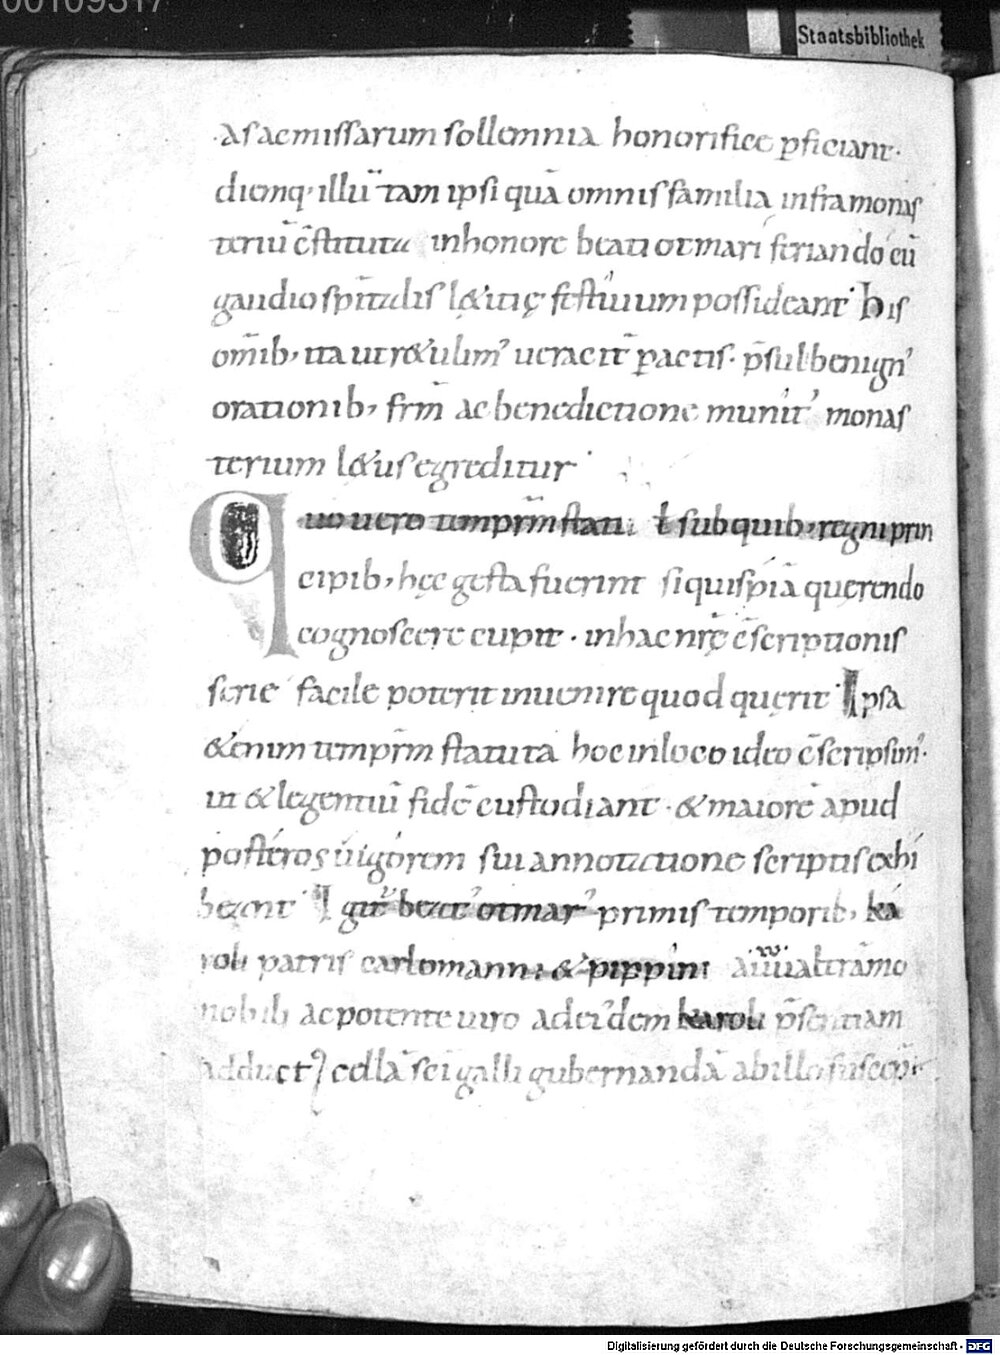 00109317
Staatsbibliothek
as ac missarum sollemnia honorifice ꝑficiant·
diemq; illū tam ipsi quā omnis familia infra monas
teriū c̄stituta in honore beati otmari feriando cū
gaudio spiritalis l&itiꝗ festiuum possideant· his
om̄ib; ita ut r&ulim᾽ ueracit̄ ꝑactis· p̄sul benign᾽
orationib; fr̄m ac benedictione munit᾽ monas
terium l&us egreditur·
Quo uero tempr̄m statu ł sub quib; regni prin
cipib; hęc gesta fuerint siquispiā querendo
cognoscere cupit· in hac nr̄ę c̄scriptionis
serie facile poterit inuenire quod quęrit· Ipsa
&enim tempr̄m statuta hoc in loco ideo c̄scripsim᾽·
ut & legentiū fidē custodiant· & maiorē apud
posteros uigorem sui annotatione scriptis exhi
beant· Igit᾽ beat᾽ otmar᾽ primis temporib; ka
roli patris carlomanni & pippini a uualtrāmo
nobili ac potente uiro ad ei᾽dem karoli p̄sentiam
adduct᾽ cellā sc̄i galli gubernandā ab illo suscepit
Digitalisierung gefördert durch die Deutsche Forschungsgemeinschaft - DFG